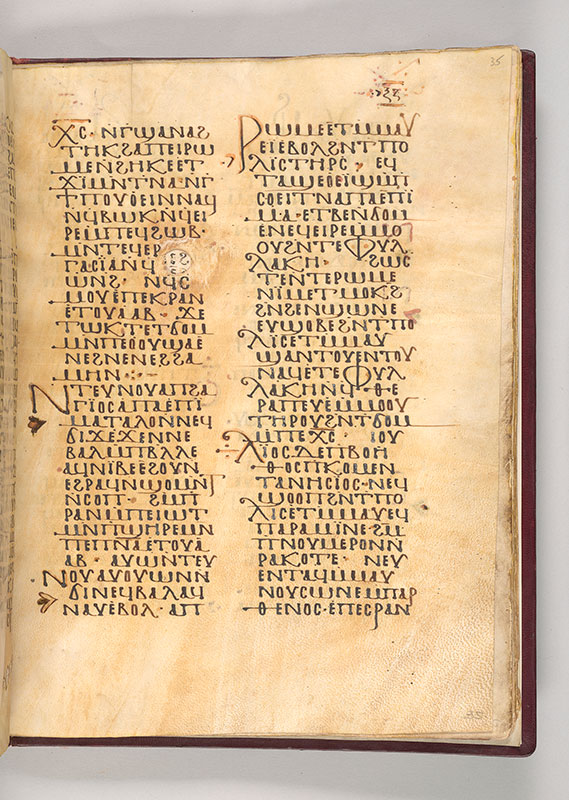 ⲭ̅ⲥ̅· ⲛ̄ⲅϣⲁⲛⲁϩ
ⲧⲏⲕϩⲁⲡⲉⲓⲣⲱ
ⲙⲉⲛ̄ϩⲏⲕⲉⲉⲧ
ϫⲓⲙⲛⲧⲛⲁ·ⲛⲅ̄
ϯⲡⲟⲩⲟⲉⲓⲛⲛⲁϥ
ⲛ̄ϥⲃⲱⲕⲛ̄ϥⲉⲓ
ⲣⲉⲙ̄ⲡⲉϥϩⲱⲃ·
ⲙⲛⲧⲉϥⲉⲣ
ⲅⲁⲥⲓⲁⲛ̄ϥ
ⲱⲛϩ· ⲛ̄ϥⲥ
ⲙⲟⲩⲉ̇ⲡⲉⲕⲣⲁⲛ
ⲉⲧⲟⲩⲁⲁⲃ· ϫⲉ
ⲧⲱⲕⲧⲉⲧϭⲟⲙ
ⲙⲛⲡⲉⲟⲟⲩϣⲁⲉ
ⲛⲉϩⲛⲉⲛⲉϩϩⲁ
ⲙⲏⲛ·
ⲛⲧⲉⲩⲛⲟⲩⲁⲡϩⲁ
ⲅⲓⲟⲥⲁⲡⲁⲉⲡⲓ
ⲙⲁⲧⲁⲗⲟⲛⲛⲉϥ
ϭⲓϫⲉϫⲉⲛⲛⲉ
ⲃⲁⲗⲙ̄ⲡⲃⲗⲗⲉ
ⲁϥⲛⲓⲃⲉⲉϩⲟⲩⲛ
ⲉϩⲣⲁϥⲛ̄ϣⲟⲙⲛ̄ⲧ
ⲛ̄ⲥⲟⲡ· ϩⲙⲡ
ⲣⲁⲛⲙ̄ⲡⲉⲓⲱⲧ
ⲙⲛⲡϣⲏⲣⲉⲙⲛ
ⲡⲉⲡⲛⲁⲉⲧⲟⲩⲁ
ⲁⲃ· ⲁⲩⲱⲛⲧⲉⲩ
ⲛⲟⲩⲁⲩⲟⲩⲱⲛⲛ
ϭⲓⲛⲉϥⲃⲁⲗⲁϥ
ⲛⲁⲩⲉⲃⲟⲗ· ⲁⲡ
ⲣⲱⲙⲉⲉⲧⲙⲙⲁⲩ
ⲉⲓⲉⲃⲟⲗϩⲛⲧⲡⲟ
ⲗⲓⲥⲧⲏⲣⲥ· ⲉϥ
ⲧⲁϣⲉⲟⲉⲓϣⲙ̄ⲡ
ⲥⲟⲉⲓⲧⲛⲁⲡⲁⲉⲡⲓ
ⲙⲁ·ⲉⲧⲃⲉⲛϭⲟⲙ
ⲉⲛⲉϥⲉⲓⲣⲉⲙⲙⲟ
ⲟⲩϩⲛⲧⲉⲫⲩⲗ
ⲗⲁⲕⲏ· ϩⲱⲥ
ⲧⲉⲛⲧⲉⲣⲱⲙⲉ
ⲛⲓⲙⲉⲧⲙⲟⲕϩ
ϩⲛϩⲉⲛϣⲱⲛⲉ
ⲉⲩϣⲟⲃⲉϩⲛⲧⲡⲟ
ⲗⲓⲥⲉⲧⲙⲙⲁⲩ
ϣⲁⲛⲧⲟⲩⲉⲛⲧⲟⲩ
ⲛⲁϥⲉⲧⲉⲫⲩⲗ
ⲗⲁⲕⲏⲛ̄ϥ·ⲑⲉ
ⲣⲁⲡⲉⲩⲉⲙⲙⲟⲟⲩ
ⲧⲏⲣⲟⲩϩⲛⲧϭⲟⲙ
ⲙ̄ⲡⲉⲭ̅ⲥ̅· ⲓⲟⲩ
ⲗⲓⲟⲥⲇⲉⲡⲃⲟⲏ
ⲑⲟⲥⲡⲕⲟⲙⲉⲛ
ⲧⲁⲛⲏⲥⲓⲟⲥ·ⲛⲉϥ
ϣⲟⲟⲡϩⲛⲧⲡⲟ
ⲗⲓⲥⲉⲧⲙⲙⲁⲩⲉϥ
ⲡⲁⲣⲁⲙⲓⲛⲉϩⲙ
ⲡⲛⲟⲩⲙⲉⲣⲟⲛⲛ
ⲣⲁⲕⲟⲧⲉ· ⲛⲉⲩ
ⲉⲛⲧⲁϥⲙⲙⲁⲩ
ⲛⲟⲩⲥⲱⲛⲉⲙⲡⲁⲣ
ⲑⲉⲛⲟⲥ·ⲉⲡⲉⲥⲣⲁⲛ
35